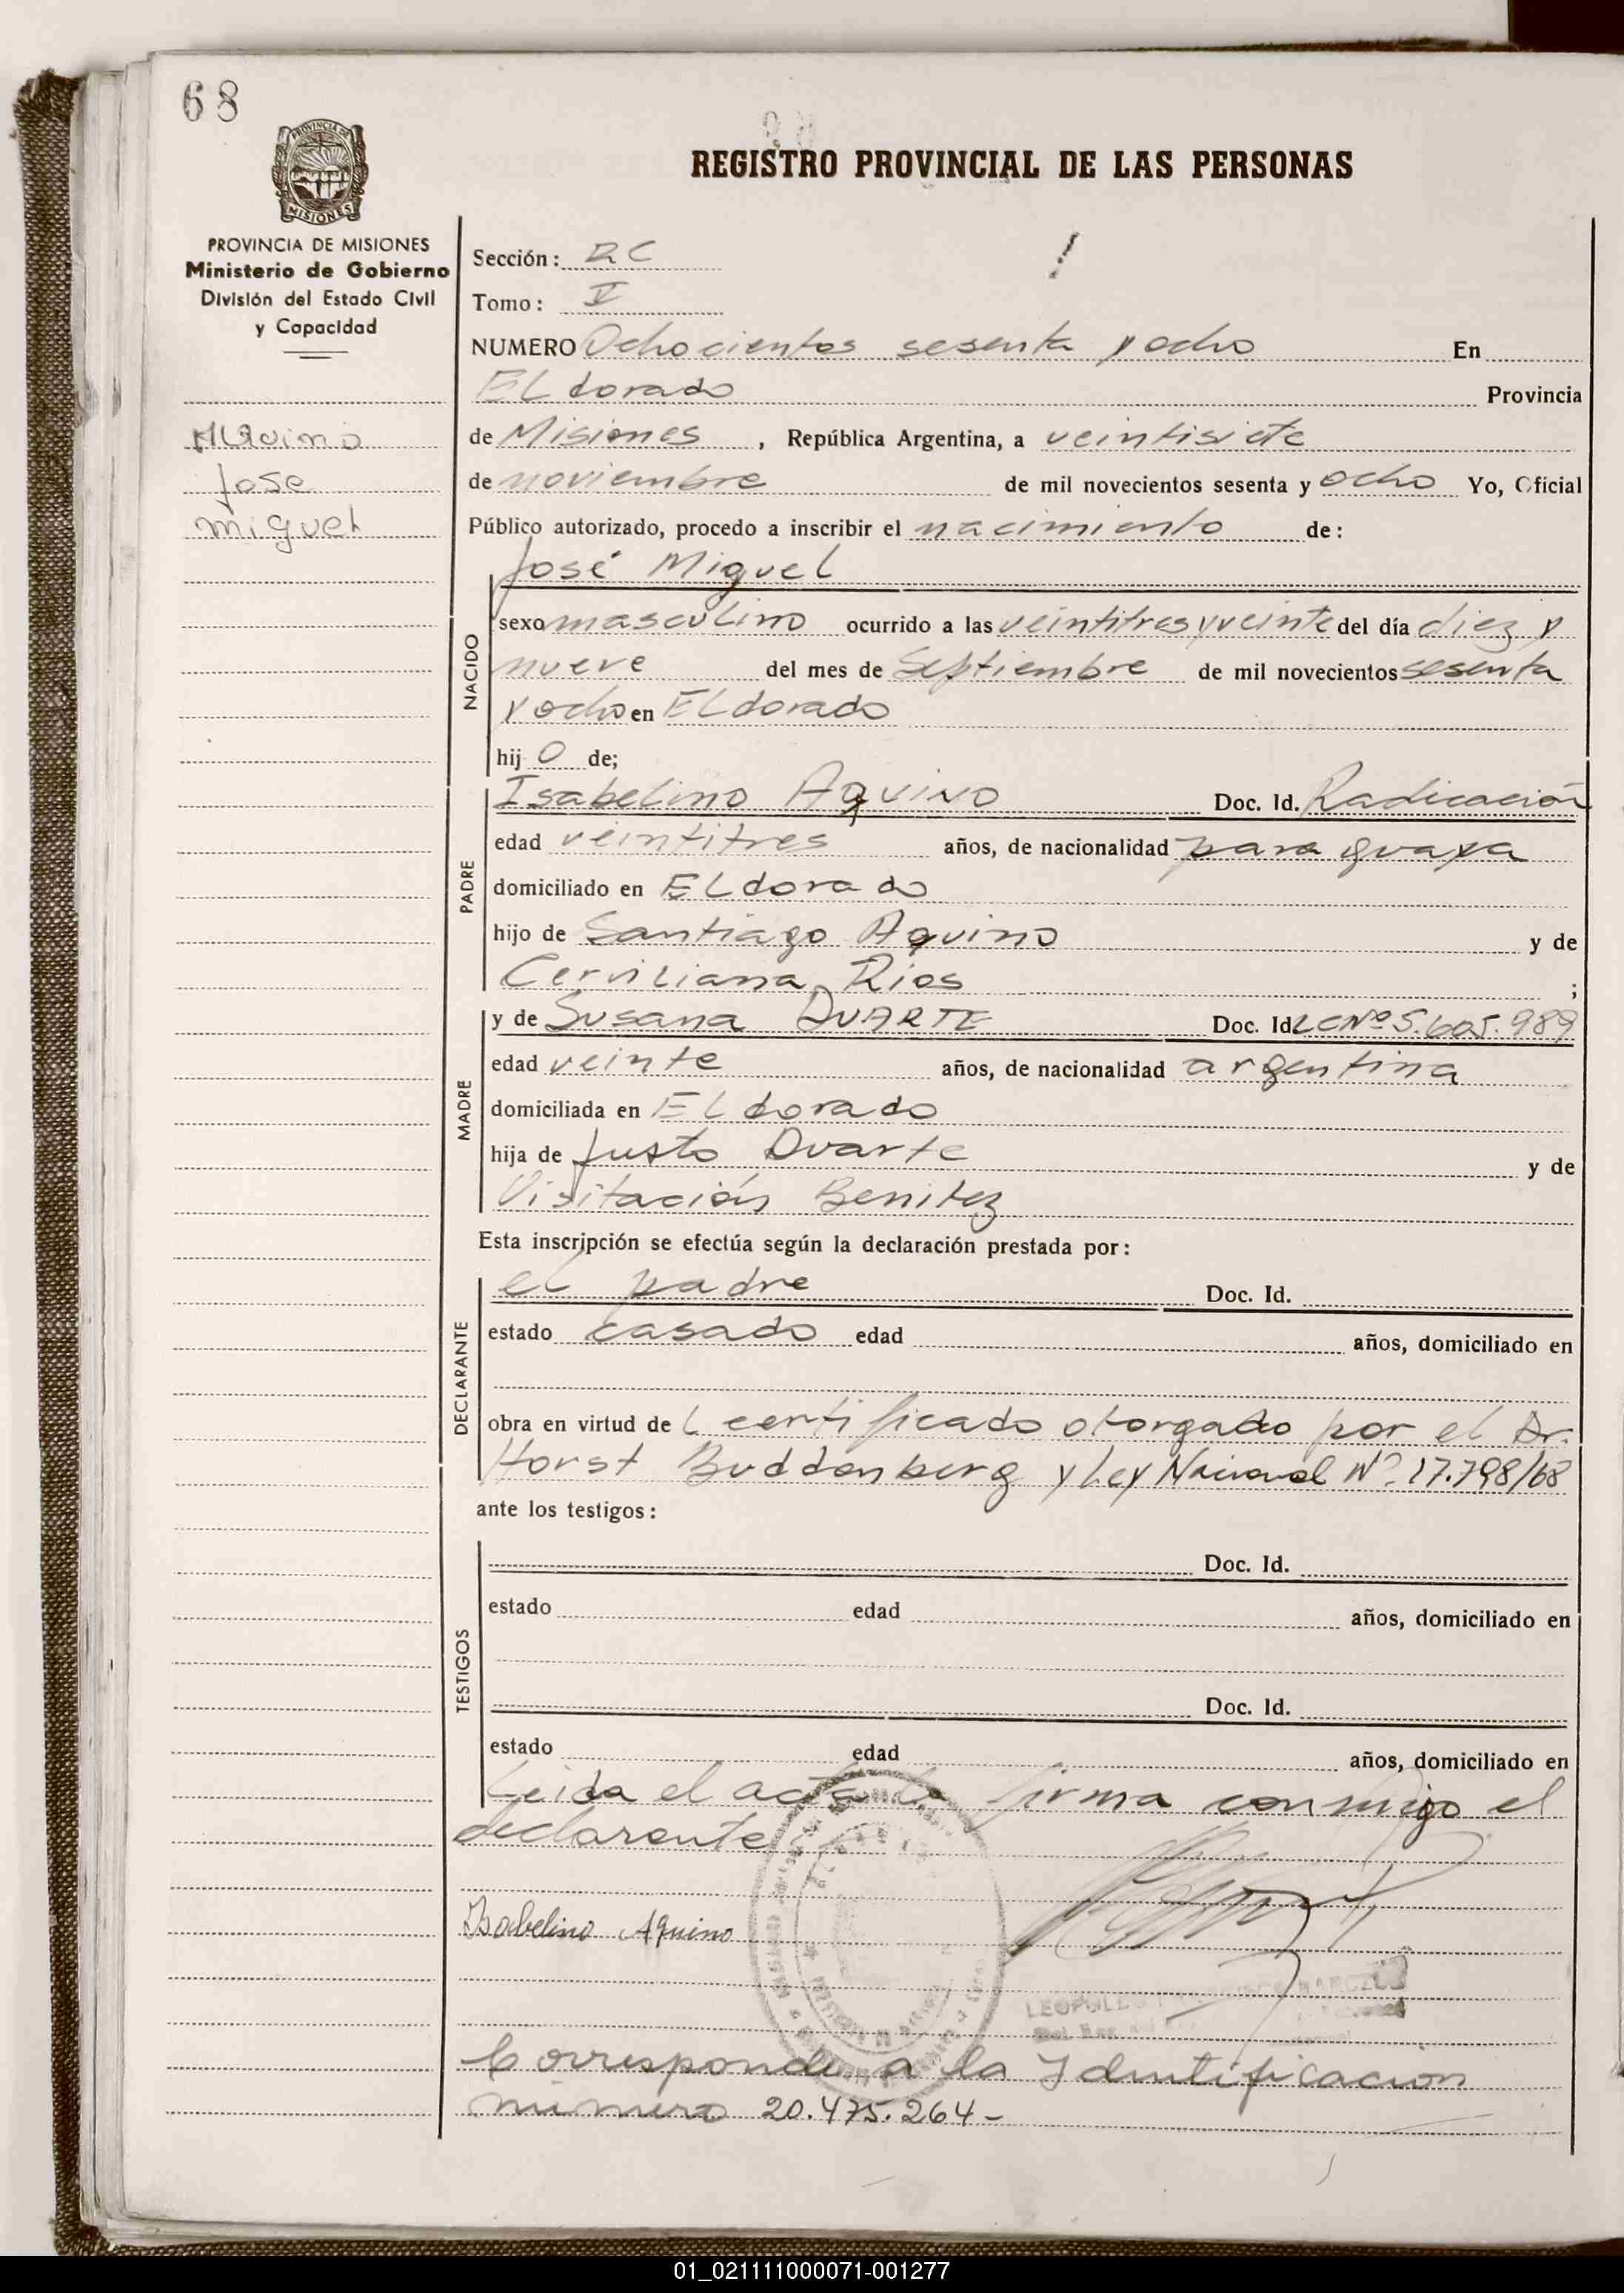 68
REGISTRO PROVINCIAL DE LAS PERSONAS
PROVINCIA DE
MISIONES
PROVINCIA DE MISIONES
Ministerio de Gobierno
División del Estado Civil
y Capacidad
Aquino
Jose
Miguel
Sección: RC
Tomo: V
NUMERO Ochocientos sesenta y ocho En
ELdorado Provincia
de Misiones, República Argentina, a veintisiete
de noviembre de mil novecientos sesenta y ocho Yo, Oficial
Público autorizado, procedo a inscribir el nacimiento de:
José Miguel
NACIDO
sexo masculino ocurrido a las veintitres y veinte del día diez y
nueve del mes de Septiembre de mil novecientos sesenta
y ocho en ELdorado
hijo de;
PADRE
Isabelino Aquino Doc. Id. Radicación
edad veintitres años, de nacionalidad paraguaya
domiciliado en ELdorado
hijo de Santiago Aquino y de
Cerviliana Rios ;
MADRE
y de Susana DUARTE Doc. Id LC Nº 5.605.989
edad veinte años, de nacionalidad argentina
domiciliada en ELdorado
hija de Justo Duarte y de
Visitación Benitez
Esta inscripción se efectúa según la declaración prestada por:
DECLARANTE
el padre Doc. Id.
estado casado edad años, domiciliado en
obra en virtud del certificado otorgado por el Dr.
Horst Buddenberg y Ley Nacional Nº 17.798/68
ante los testigos:
TESTIGOS
Doc. Id.
estado edad años, domiciliado en
Doc. Id.
estado edad años, domiciliado en
Leida el acta la firma conmigo el
declarante
Isabelino Aquino
Corresponde a la Identificación
número 20.475.264-
01_021111000071-001277